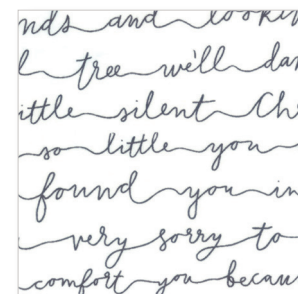 nds and lookin
l tree we'll dan
ittle silent Ch
so little you
found you in
very sorry to
comfort you becau